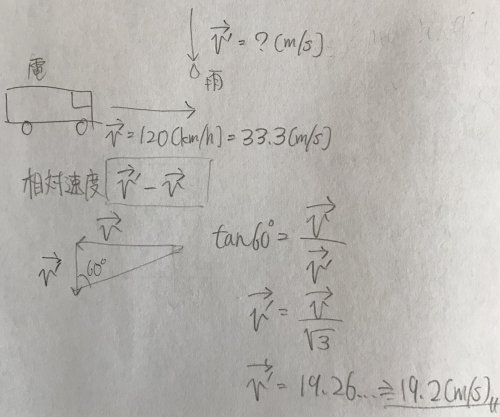 v⃗' = ? (m/s)
雨
電
v⃗ = 120(km/h) = 33.3(m/s)
相対速度 v⃗' − v⃗
v⃗
v⃗'
60°
tan60° = v⃗ / v⃗'
v⃗' = v⃗ / √3
v⃗' = 19.26... ≒ 19.2(m/s)〃